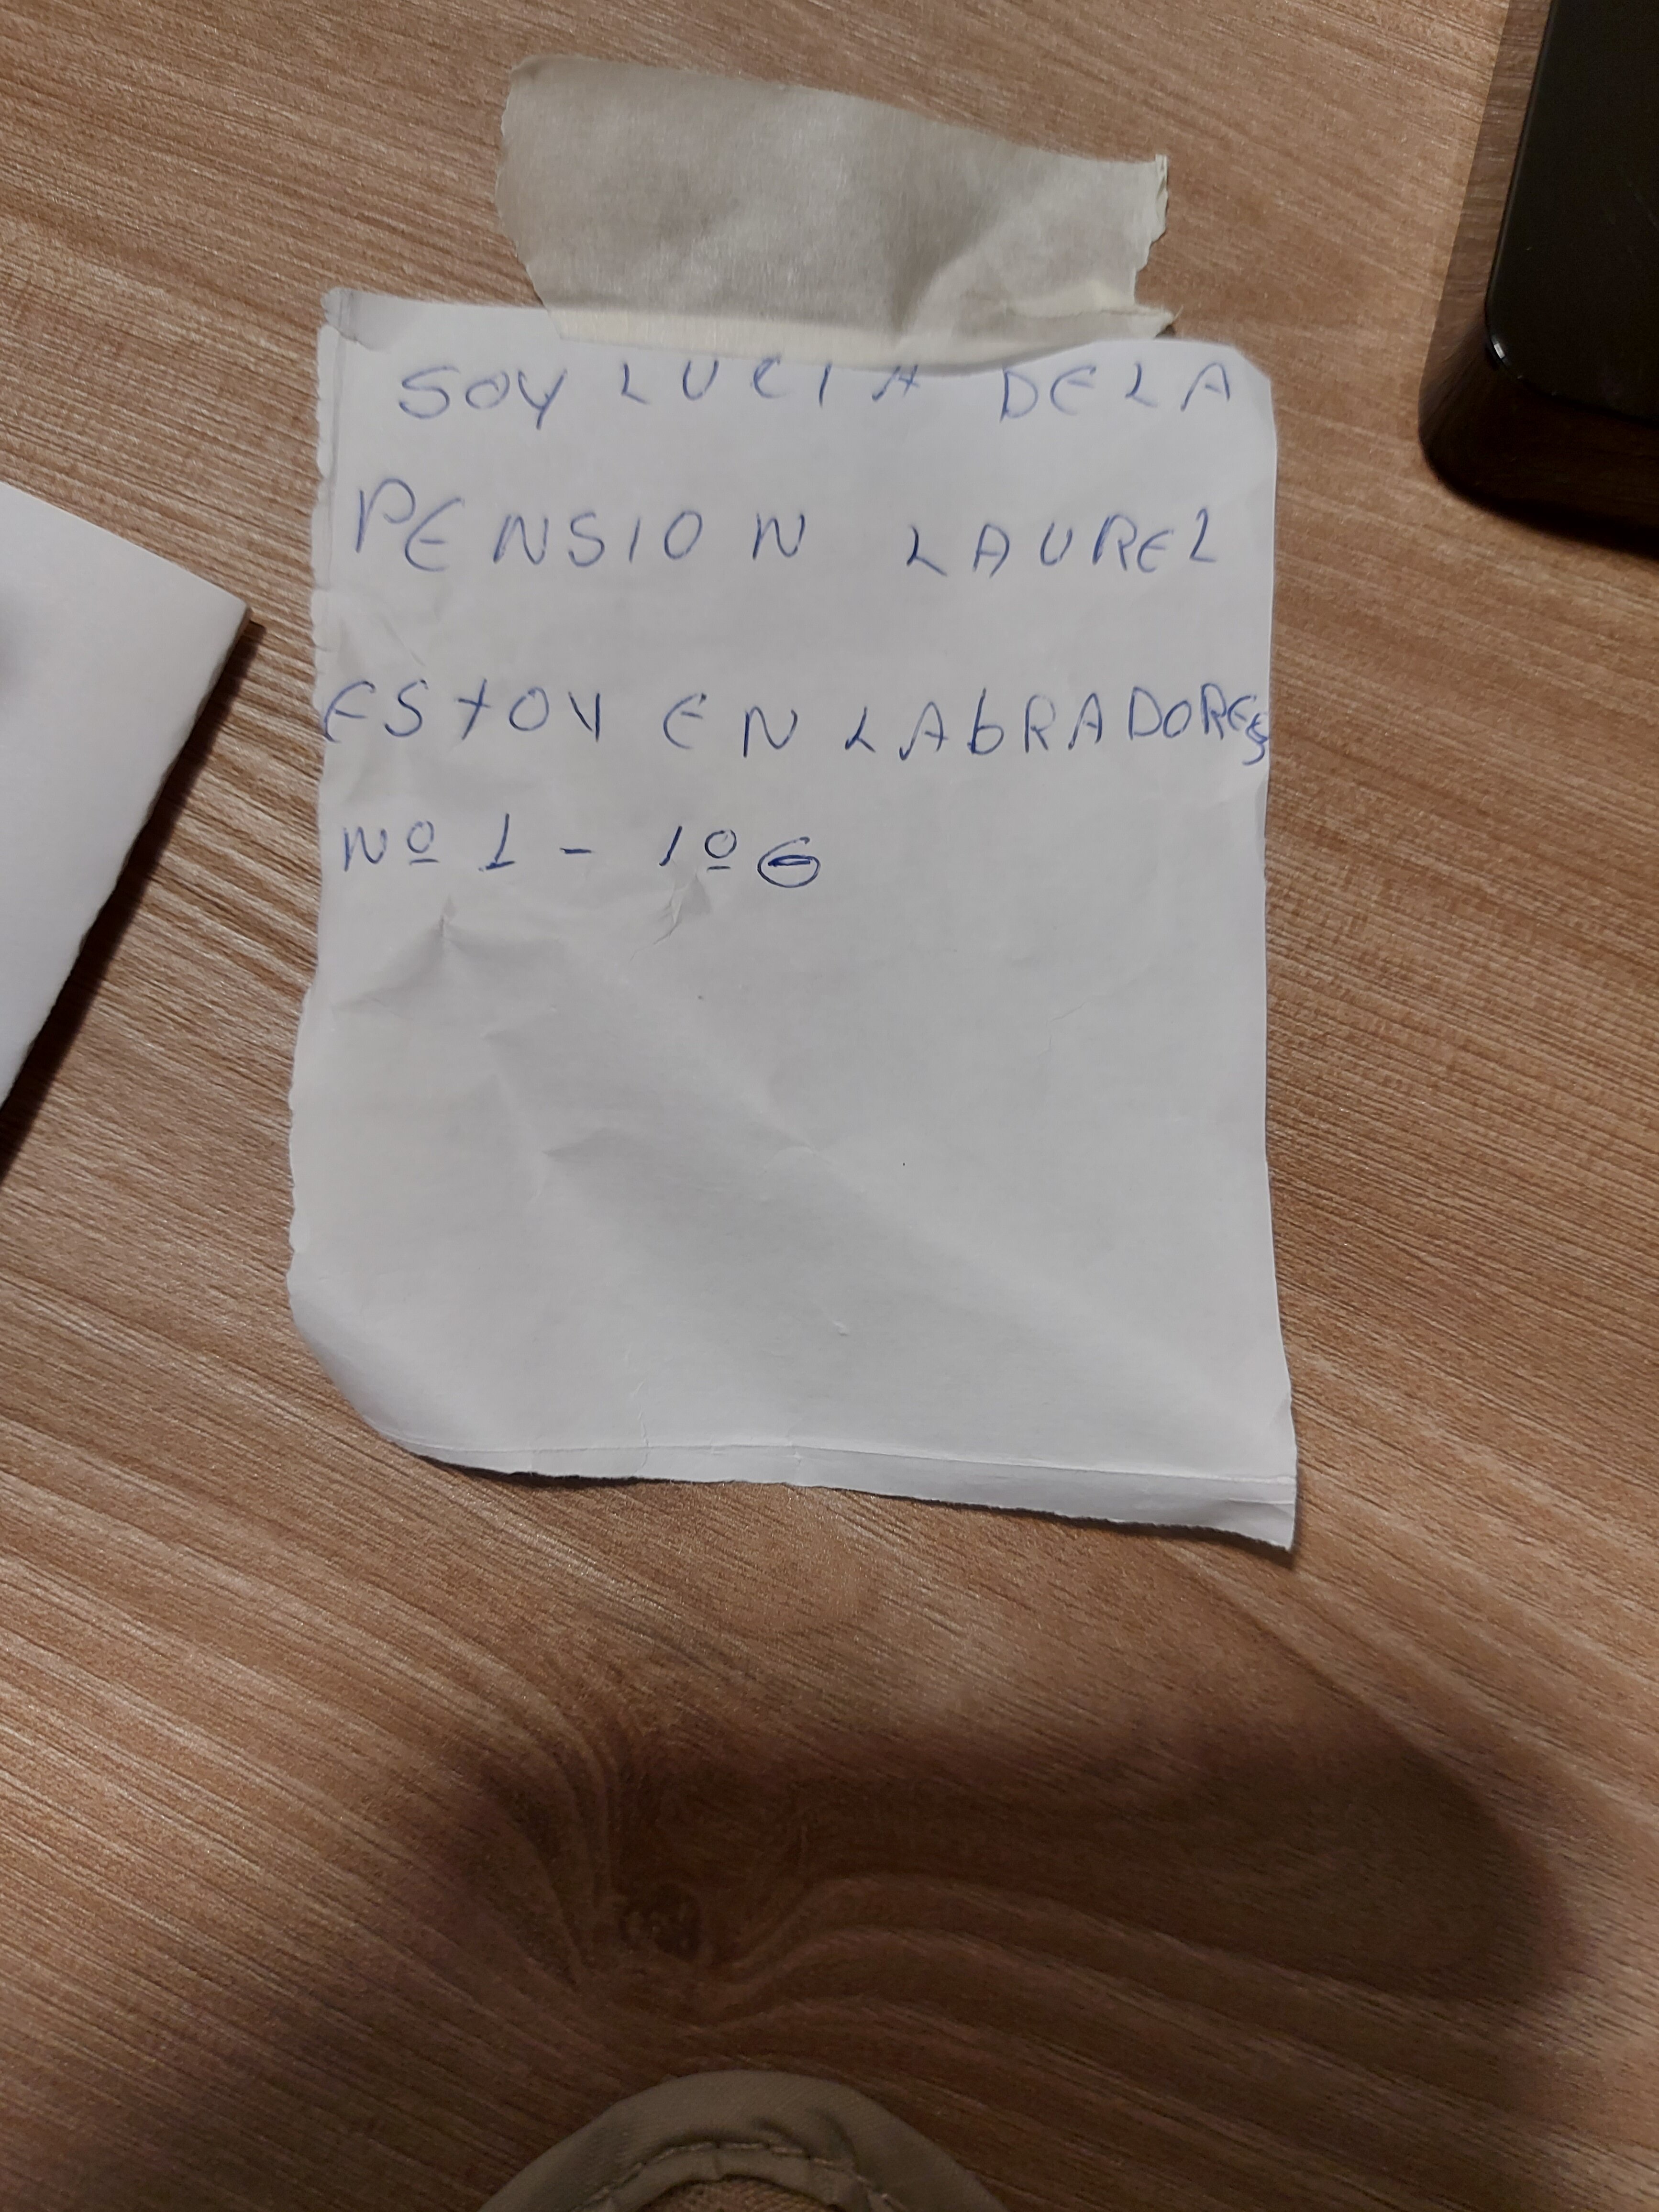 SOY LUCIA DE LA
PENSION LAUREL
ESTOY EN LABRADORES
Nº 1 - 1º G